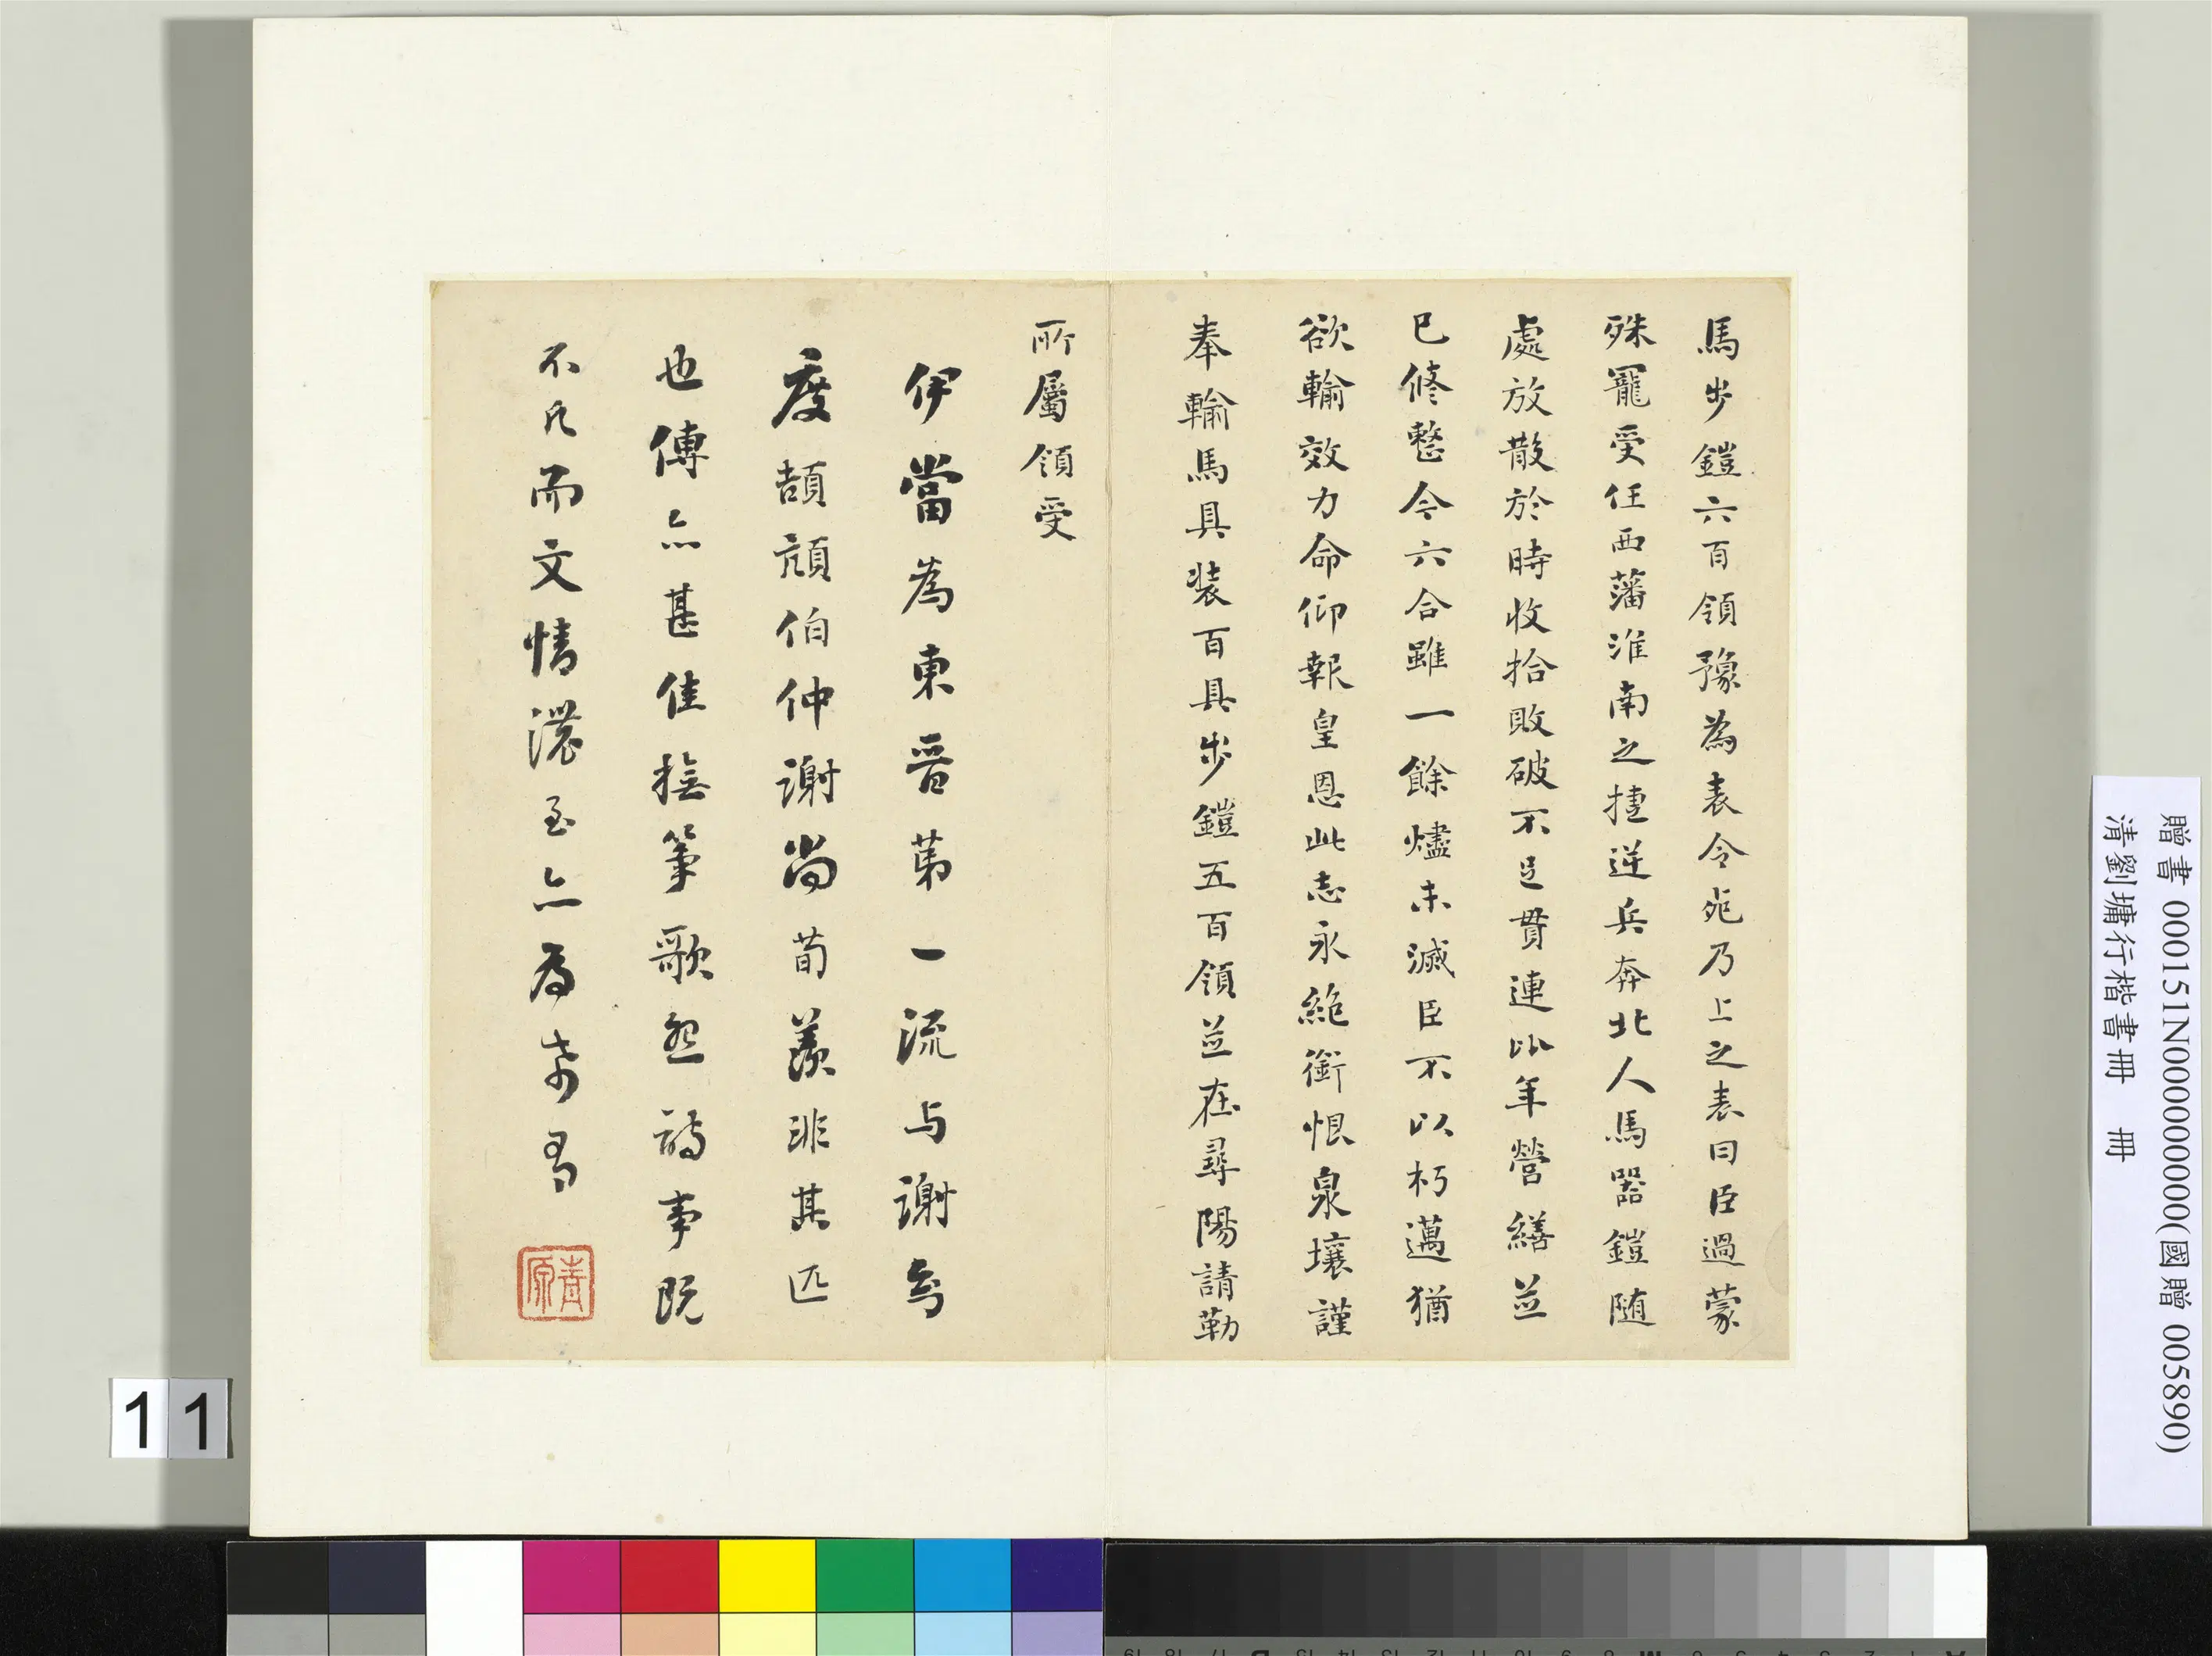 馬步鎧六百領豫為表令死乃上之表曰臣過蒙
殊寵受任西藩淮南之捷逆兵奔北人馬器鎧隨
處放散於時收拾敗破不足貫連比年營繕並
已修整令六合雖一餘燼未滅臣不以朽邁猶
欲輸效力命仰報皇恩此志永絕銜恨泉壤謹
奉輸馬具裝百具步鎧五百領並在尋陽請勒
所屬領受
伊當為東晉第一流与謝安
度頡頏伯仲謝尚荀羨非其匹
也傅亦甚佳撫箏歌怨詩事既
不凡而文情濃至亦為希有
青原
贈書 000151N000000000(國贈 005890)
清劉墉行楷書冊 冊
11